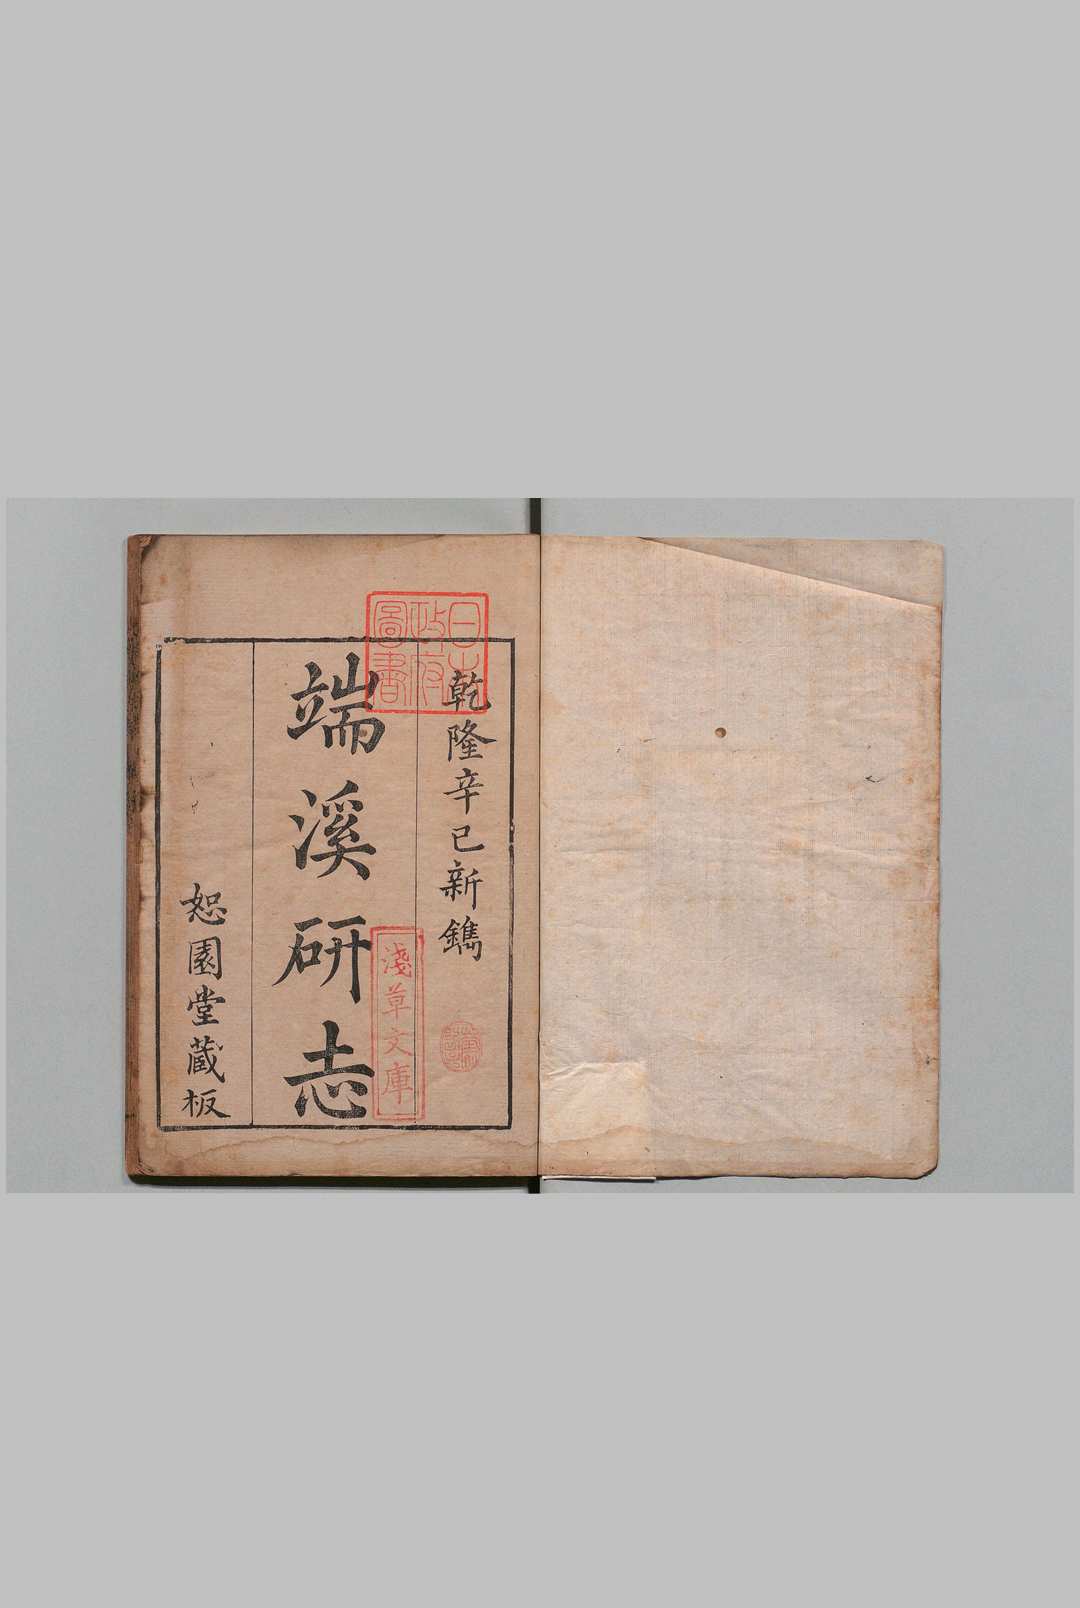 乾隆辛巳新鐫
端溪研志
恕園堂藏板
日本政府圖書
淺草文庫